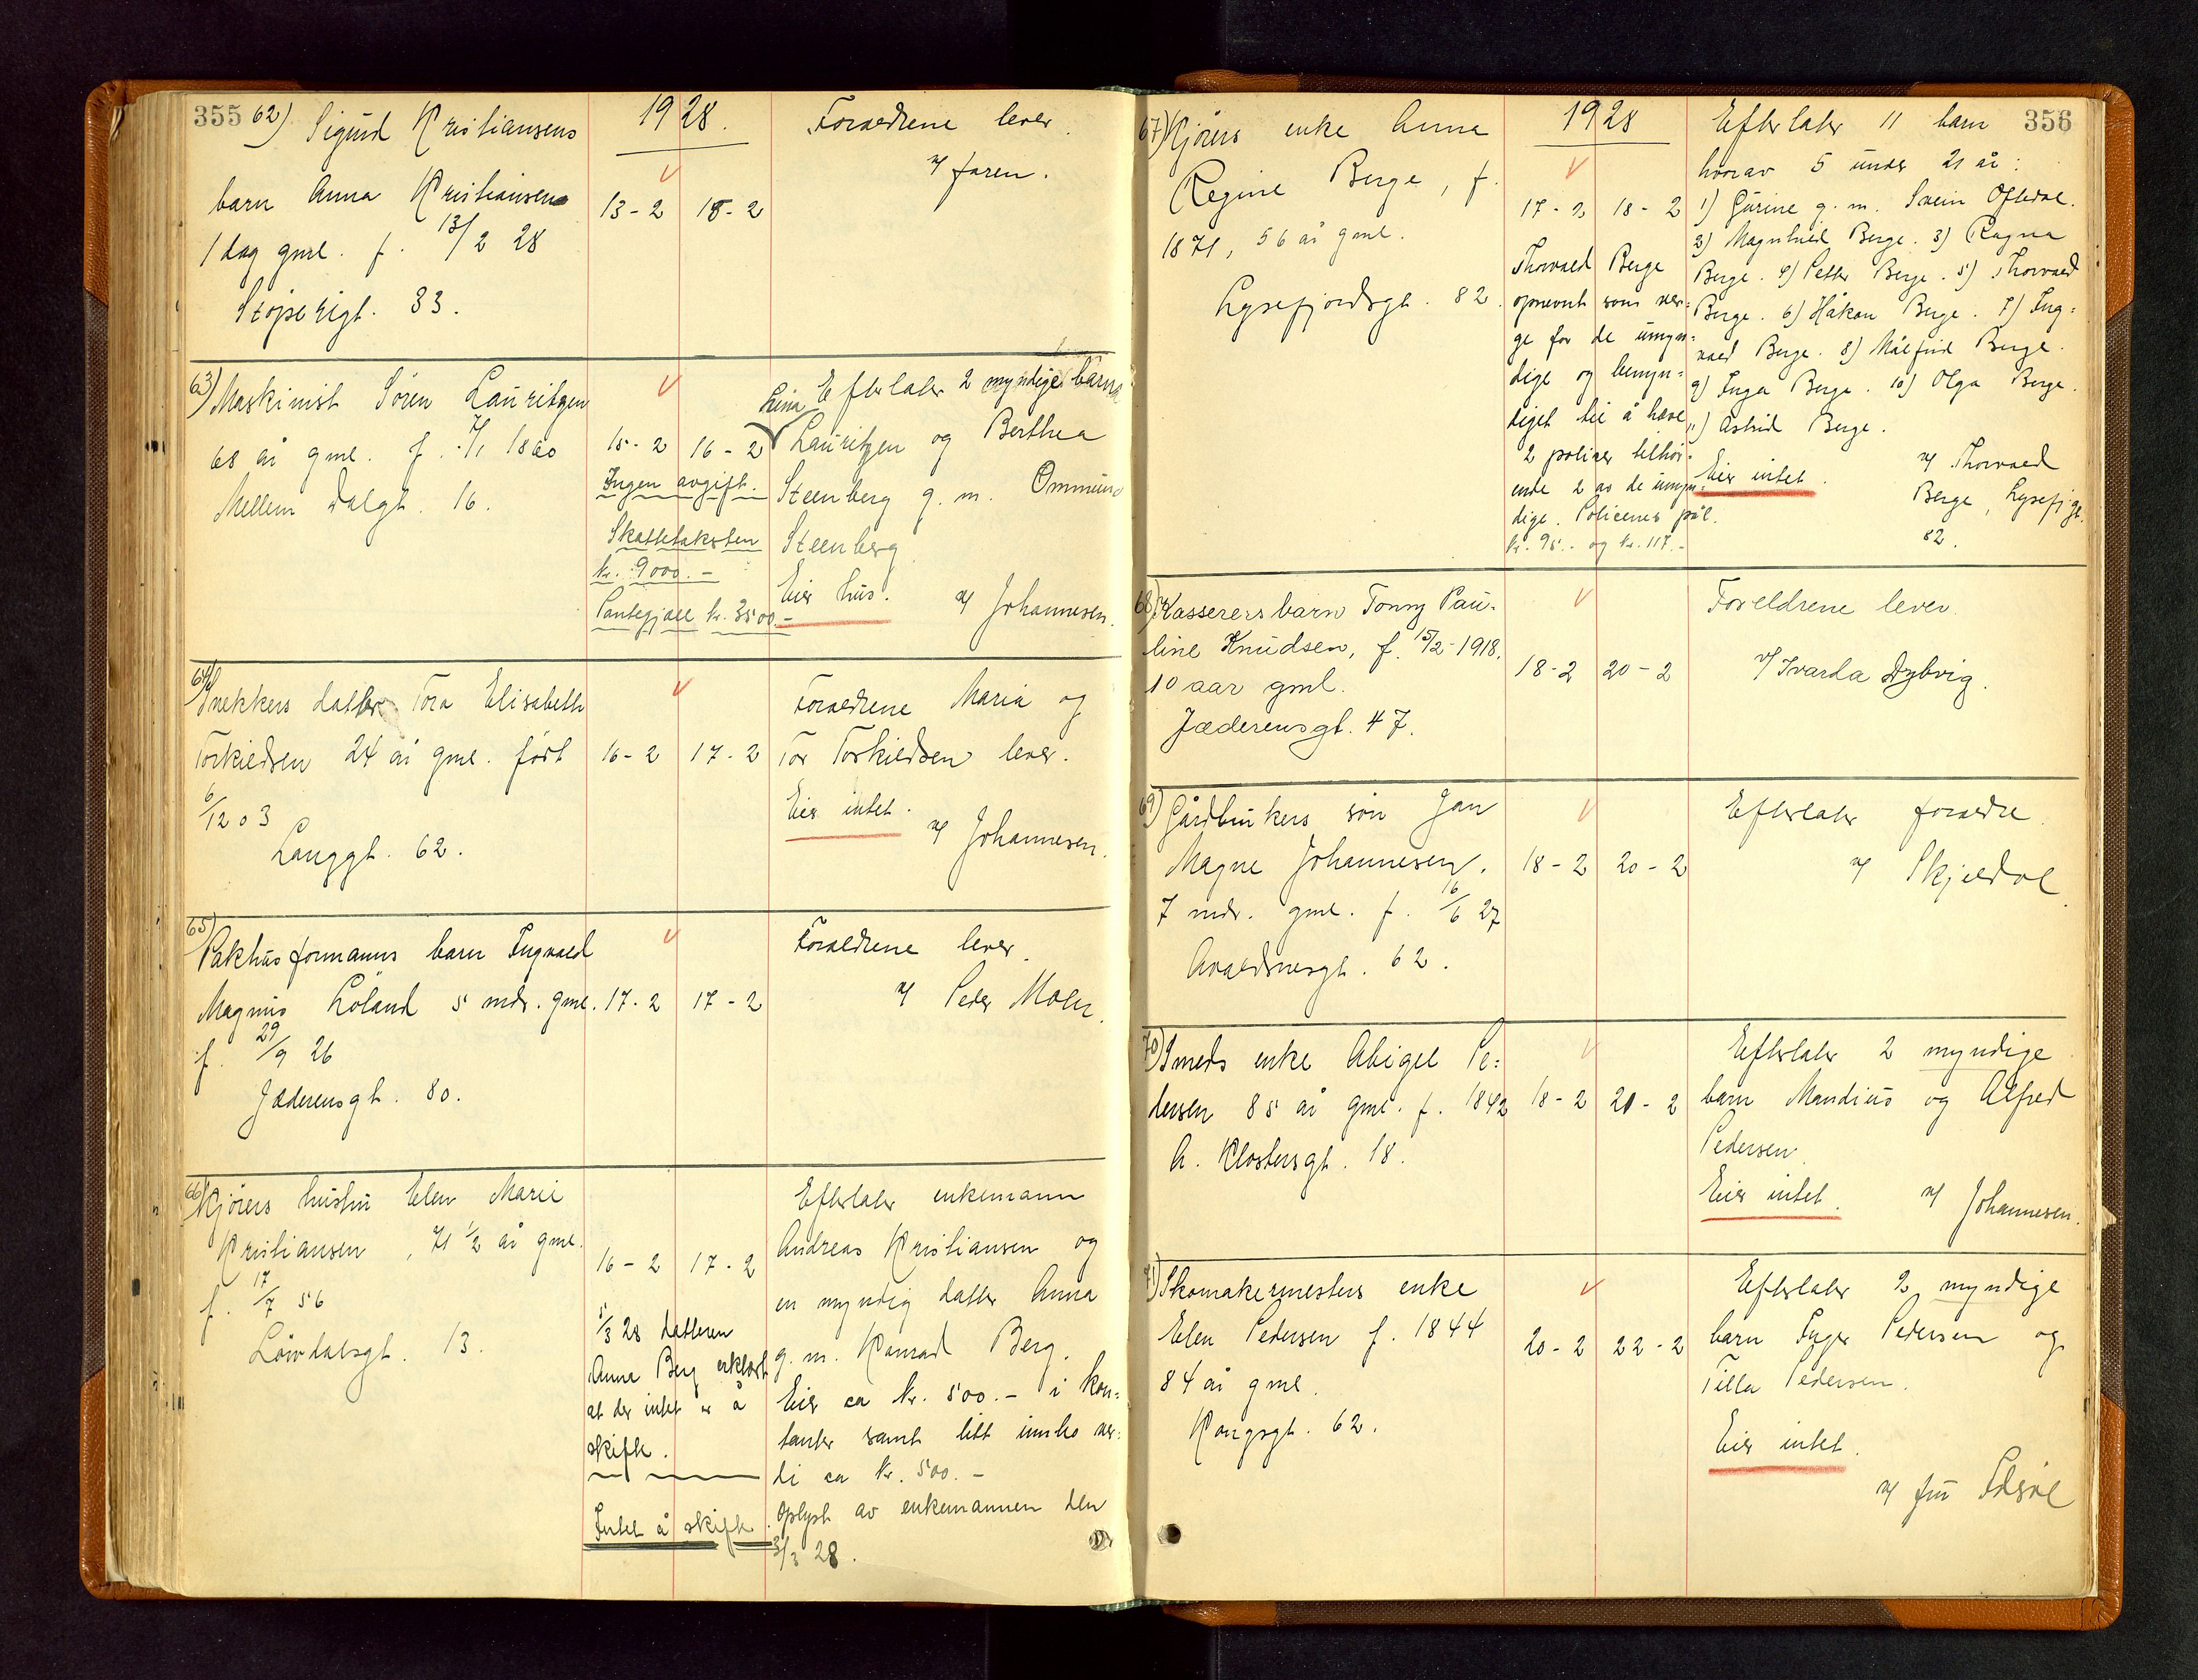 355
62) Sigurd Kristiansens
barn Anna Kristiansen
1 dag gml. f. 13/2 28
Støperigt. 33.
1928.
13-2 18-2
Forældrene lever.
v/ faren.
63) Maskinist Sören Lauritzen
68 år gml. f. 7/1 1860
Mellem Dalgt. 16.
15-2 16-2
Ingen avgift.
Skattetaksten
kr. 9000.-
Pantegjæll kr. 3500.-
Efterlater 2 myndige barn
Lina Lauritzen og Berthea
Steenberg g. m. Ommund
Steenberg
Eier hus.
v/ Johannesen.
64) Snekkers datter Tora Elisabeth
Torkildsen 24 år gml. født
6/12 03
Langgt. 62.
16-2 17-2
Forældrene Maria og
Tor Torkildsen lever.
Eier intet.
v/ Johannesen.
65) Pakhusformanns barn Ingvald
Magnus Löland 5 mdr. gml.
f. 29/9 26
Jæderensgt. 80.
17-2 17-2
Forældrene lever.
v/ Peder Moen.
66) Kjörers hustru Elen Marie
Kristiansen, 71 1/2 år gml.
f. 17/7 56
Lövdalsgt. 13.
16-2 17-2
5/3 28 datteren
Anna Berg erklært
at der intet er å
skifte.
Intet å skifte.
Efterlater enkemann
Andreas Kristiansen og
en myndig datter Anna
g. m. Konrad Berg.
Eier ca kr. 500.- i kon=
tanter samt litt innbo ver=
di ca kr. 500.-
Oplyst av enkemannen den
3/3 28.
356
67) Kjörers enke Anna
Regine Berge, f.
1871, 56 år gml.
Lysefjordsgt. 82.
1928
17-2 18-2
Thorvald Berge
opnevnt som ver=
ge for de umyn=
dige og bemyn=
diget til å heve
2 poliser tilhör=
ende 2 av de umyn=
dige. Policenes pål.
kr. 95.- og kr. 117.-
Efterlater 11 barn
hvorav 5 under 21 år:
1) Gurine g. m. Svein Oftedal.
2) Magnhild Berge. 3) Ragna
Berge. 4) Petter Berge. 5) Thorvald
Berge. 6) Håkon Berge. 7) Ing=
vald Berge. 8) Målfrid Berge.
9) Inga Berge. 10) Olga Berge.
11) Astrid Berge.
Eier intet.
v/ Thorvald
Berge, Lysefj.gt.
82.
68) Kasserers barn Tonny Pau=
line Knudsen, f. 15/2-1918.
10 aar gml.
Jæderensgt. 47.
18-2 20-2
Foreldrene lever.
v/ Svarda Dybvig.
69) Gårdbrukers sön Jan
Magne Johannesen.
7 mdr. gml. f. 16/6 27
Avaldsnesgt. 62.
18-2 20-2
Efterlater forældre.
v/ Skjeldal.
70) Smeds enke Abigel Pe=
dersen 85 år gml. f. 1842
A. Klostersgt. 18.
18-2 20-2
Efterlater 2 myndige
barn Mandius og Alfred
Pedersen.
Eier intet.
v/ Johannesen.
71) Skomakermesters enke
Elen Pedersen f. 1844
84 år gml.
Kongsgt. 62.
20-2 22-2
Efterlater 2 myndige
barn Inger Pedersen og
Tilla Pedersen.
Eier intet.
v/ fru